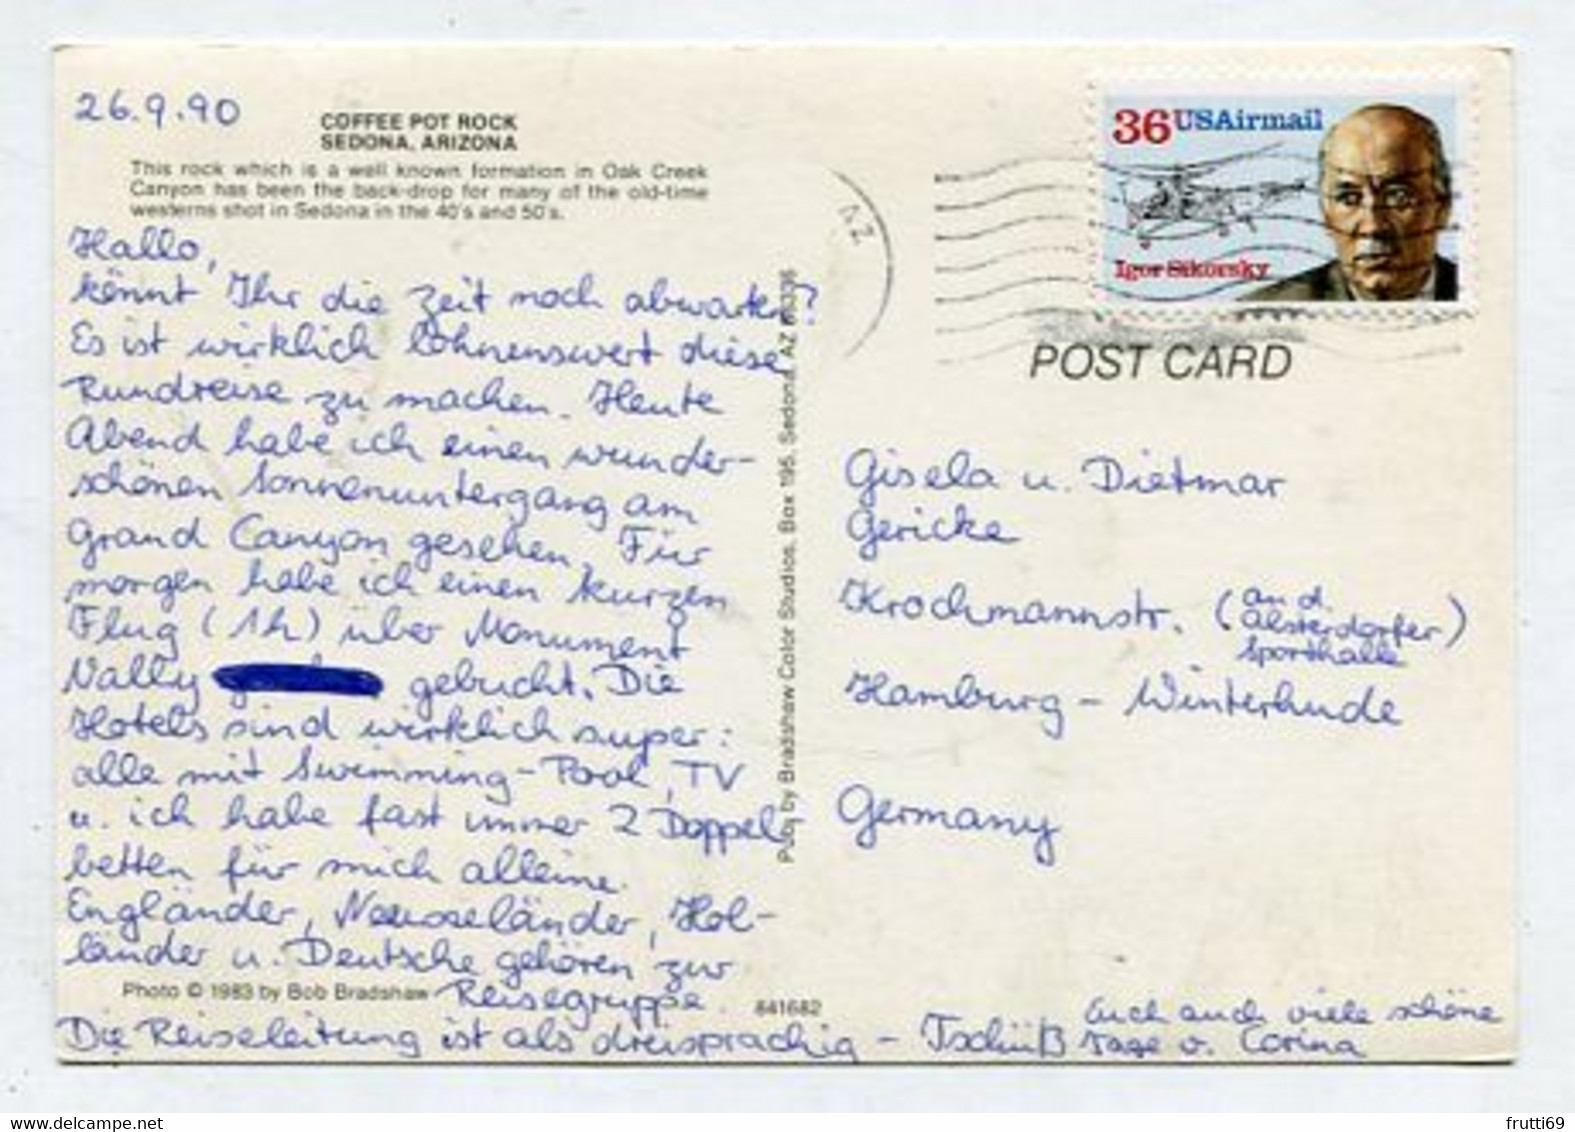 26.9.90
COFFEE POT ROCK
SEDONA, ARIZONA
This rock which is a well known formation in Oak Creek
Canyon has been the back-drop for many of the old-time
westerns shot in Sedona in the 40's and 50's.
Hallo,
könnt Ihr die Zeit noch abwarten?
Es ist wirklich lohnenswert diese
Rundreise zu machen. Heute
Abend habe ich einen wunder-
schönen Sonnenuntergang am
Grand Canyon gesehen. Für
morgen habe ich einen kurzen
Flug (1h) über Monument
Vally gebucht. Die
Hotels sind wirklich super:
alle mit Swimming-Pool, TV
u. ich habe fast immer 2 Doppel-
betten für mich alleine.
Engländer, Neuseeländer, Hol-
länder u. Deutsche gehören zur
Reisegruppe.
Photo © 1983 by Bob Bradshaw
841682
Die Reiseleitung ist als dreisprachig - Tschüß
Euch auch viele schöne
Tage v. Corina
Pub. by Bradshaw Color Studios, Box 195, Sedona, AZ
AZ
36 USAirmail
Igor Sikorsky
POST CARD
Gisela u. Dietmar
Gericke
Krochmannstr. (an d.
Alsterdorfer)
Sporthalle
Hamburg - Winterhude
Germany
frutti69